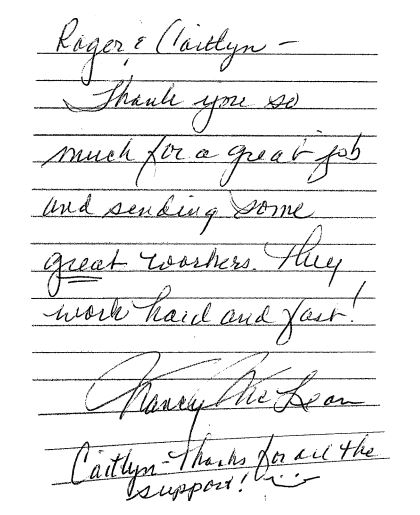 Roger & Caitlyn –
Thank you so
much for a great job
and sending some
great workers. They
work hard and fast!
Nancy McLean
Caitlyn – Thanks for all the
support! :)